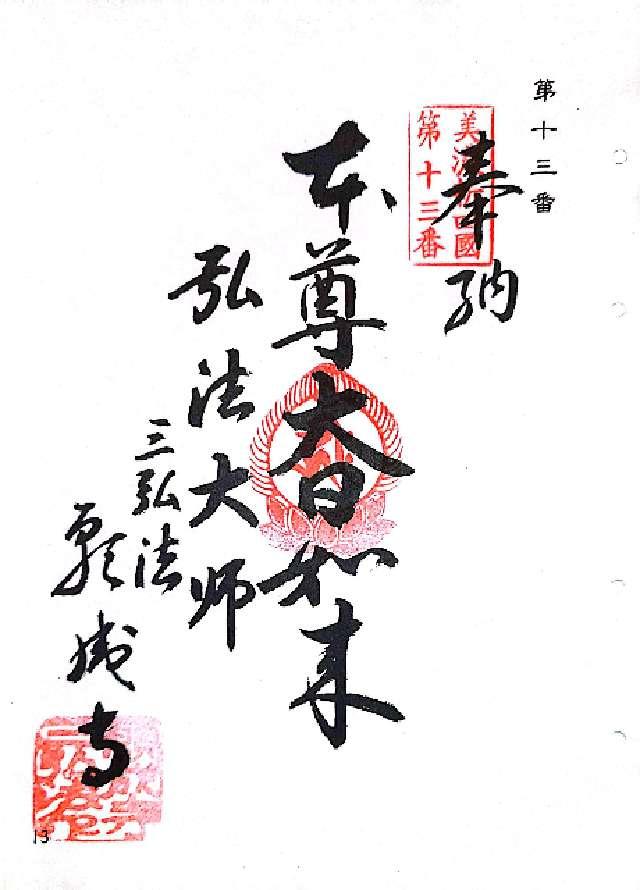 第十三番
奉納
美濃新四國
第十三番
本尊大日如来
弘法大师
三弘法
願成寺
13